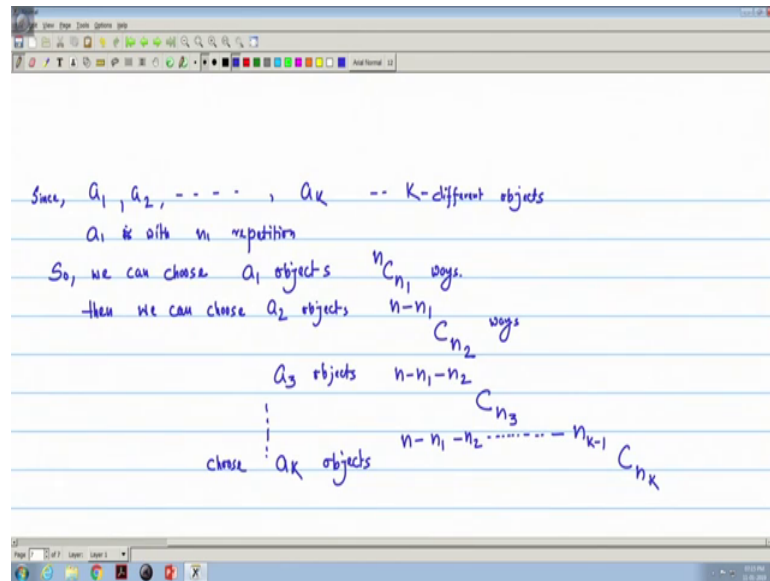 View Page Tools Options Help
Arial Normal 12
Since, a1, a2, - - - - - , aK -- K-different objects
a1 is with n1 repetition
So, we can choose a1 objects nCn1 ways.
then we can choose a2 objects n-n1Cn2 ways
a3 objects n-n1-n2Cn3
choose aK objects n-n1-n2--------nk-1CnK
Page 7 of 7 Layer: Layer 1